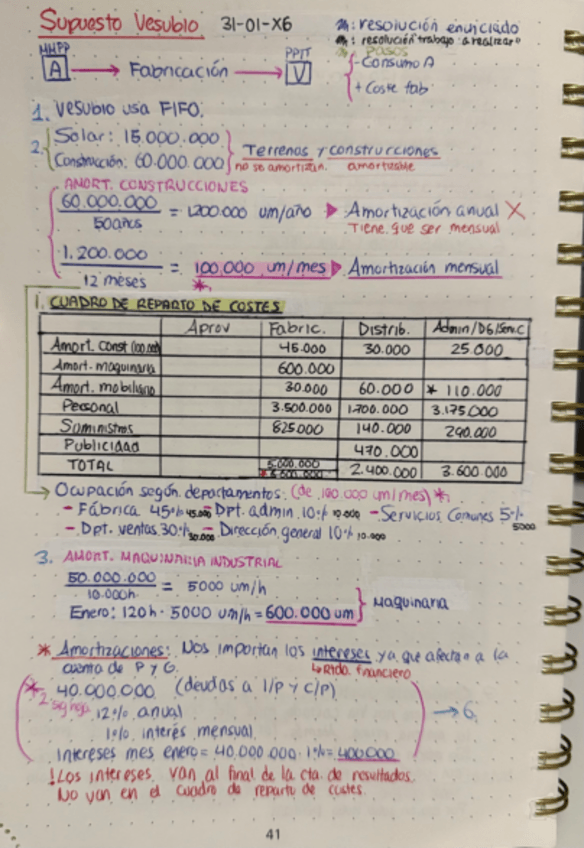 Supuesto Vesubio 31-01-X6
: resolución enunciado
: resolución trabajo a realizar
: Pasos
MMPP
A → Fabricación → V
PPTT
- Consumo A
+ Coste fab
1. Vesubio usa FIFO.
2. Solar: 15.000.000
Construcción: 60.000.000
Terrenos y construcciones
no se amortizan. amortizable
AMORT. CONSTRUCCIONES
60.000.000 / 50 años = 1200.000 um/año ▶ Amortización anual X
Tiene que ser mensual
1.200.000 / 12 meses = 100.000 um/mes ▶ Amortización mensual
*1
1. CUADRO DE REPARTO DE COSTES
Aprov Fabric. Distrib. Admin/DG/Serv.C
Amort. Const (100.000) 45.000 30.000 25.000
Amort. maquinaria 600.000
Amort. mobiliario 30.000 60.000 * 110.000
Personal 3.500.000 1.700.000 3.175.000
Suministros 825.000 140.000 290.000
Publicidad 470.000
TOTAL 5.000.000 2.400.000 3.600.000
→ Ocupación según departamentos: (de 100.000 um/mes) *1
- Fábrica 45% 45.000 - Dpt. admin. 10% 10.000 - Servicios Comunes 5% 5000
- Dpt. ventas 30% 30.000 - Dirección general 10% 10.000
3. AMORT. MAQUINARIA INDUSTRIAL
50.000.000 / 10.000h = 5000 um/h
Enero: 120h · 5000 um/h = 600.000 um
Maquinaria
* Amortizaciones: Nos importan los intereses ya que afectan a la
cuenta de P y G. ↳ Rtdo. financiero
* 40.000.000 (deudas a l/p y c/p)
12% anual
1% interés mensual
→ 6.
Intereses mes enero = 40.000.000 · 1% = 400.000
! Los intereses van al final de la cta. de resultados.
No van en el cuadro de reparto de costes.
41